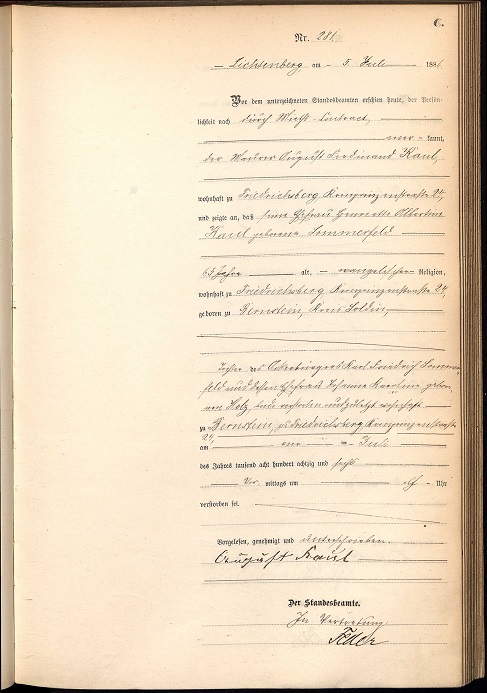 C.
Nr. 281
Lichtenberg, am 5. Juli 1886
Vor dem unterzeichneten Standesbeamten erschien heute, der Persön-
lichkeit nach durch
kannt,
der Maurer August Ferdinand Kaul,
wohnhaft zu Friedrichsberg, Kronprinzenstraße 24,
und zeigte an, daß seine Ehefrau Henriette Albertine
Kaul geborene Sommerfeld
63 Jahre alt, evangelischer Religion,
wohnhaft zu Friedrichsberg, Kronprinzenstraße 24,
geboren zu Bernstein, Kreis Soldin,
Tochter des Ackerbürgers Karl Friedrich Sommer-
feld und dessen Ehefrau Johanne Karoline gebore-
nen Holz, beide verstorben und zuletzt wohnhaft
zu Bernstein, zu Friedrichsberg Kronprinzenstraße
24,
am vier Juli
des Jahres tausend acht hundert achtzig und sechs
Vor mittags um elf Uhr
verstorben sei.
Vorgelesen, genehmigt und unterschrieben.
August Kaul
Der Standesbeamte.
In Vertretung